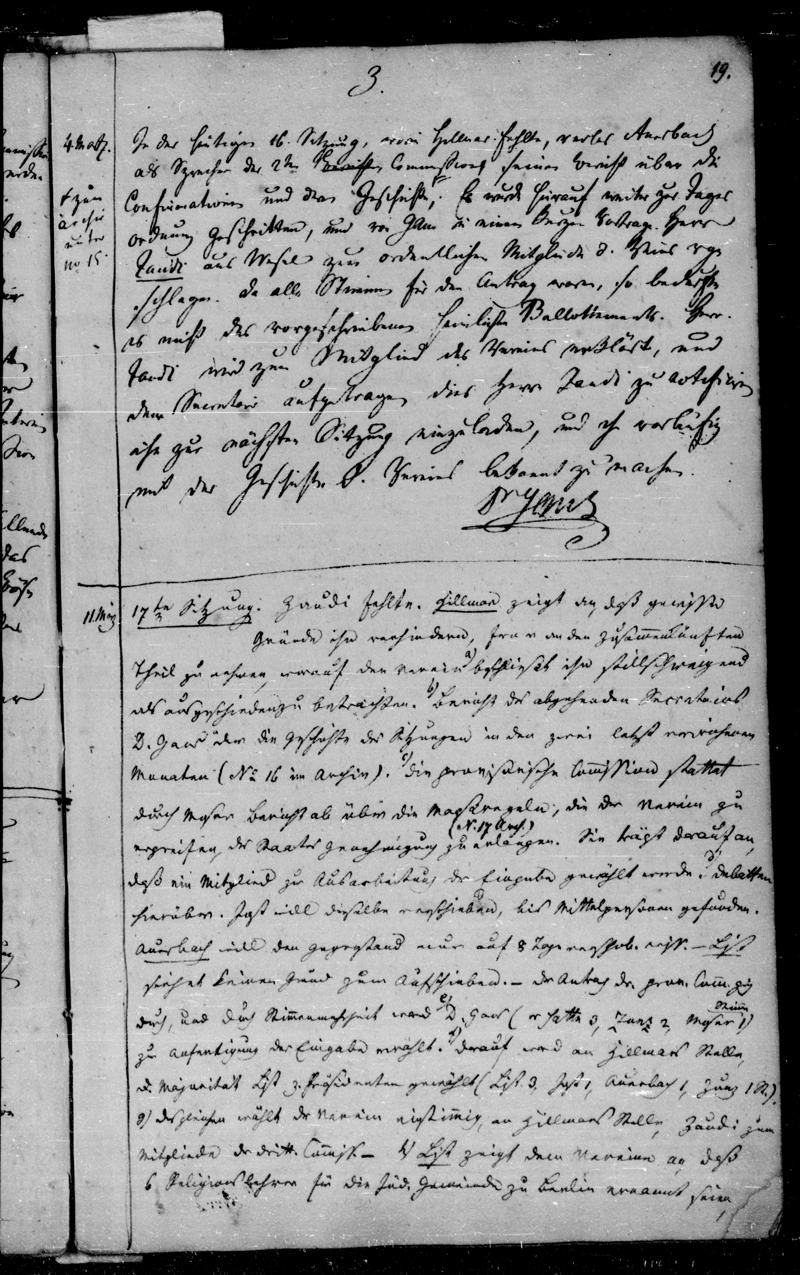 3.
19.
4 März.
In der heutigen 16. Sitzung, worin Hillmar fehlte, verlas Auerbach
als Sprecher der 2ten Commission seinen Bericht über die
Confirmationen und deren Geschichte. Es wurde hierauf weiter zur Tages
† zum
Archiv
unter
no 15.
ordnung geschritten, und von Gans in einem kurzen Vortrage Herr
Zaudi aus Wesel zum ordentlichen Mitgliede d. Vereins vorge
schlagen. Da alle Stimmen für den Antrag waren, so bedurfte
es nicht des vorgeschriebenen heimlichen Ballottements. Herr
Zaudi wird zum Mitglied des Vereins erklärt, und
dem Secretair aufgetragen dies Herrn Zaudi zu notificiren
ihn zur nächsten Sitzung einzuladen, und ihn vorläufig
mit der Geschichte d. Vereins bekannt zu machen.
11. März
17te Sitzung. Zaudi fehlte. Hillmar zeigt an, daß gewisse
Gründe ihn verhindern, ferner an den Zusammenkünften
Theil zu nehmen, worauf der Verein a) beschliesst ihn stillschweigend
als ausgeschieden zu betrachten. b) Bericht des abgehenden Secretairs
D. Gans über die Geschichte der Sitzungen in den zwei letzt
Monaten (No 16 im Archiv). c) die provisorische Commission stattet
durch Moser Bericht ab über die Maßregeln, die der Verein zu
ergreifen, des Staates Genehmigung zu erlangen. (N. 17 Arch.) Sie trägt darauf an,
daß ein Mitglied zur Ausarbeitung der Eingabe gewählt werde. d) Debatten
hierüber. Jost will dieselbe verschieben, bis Mittelpersonen gefunden.
Auerbach will den Gegenstand nur auf 8 Tage verschob. wiss. – List
siehet keinen Grund zum Aufschieben. – Der Antrag der prov. Comm. ging
durch, und durch Stimmenmehrheit ward e) D. Gans (er hatte 3, Zunz 2, Moser 1 Stimme)
zu Anfertigung der Eingabe erwählt. f) Darauf ward an Hillmars Stelle,
d. Majorität List z. Präsidenten gewählt (List 3, Jost 1, Auerbach 1, Zunz 1 St.).
g) desgleichen wählt der Verein einstimmig, an Hillmars Stelle, Zaudi zum
Mitgliede der dritt. Commiss – h) List zeigt dem Vereine an, daß
6 Religionslehrer für die jüd. Gemeinde zu Berlin ernannt seien,